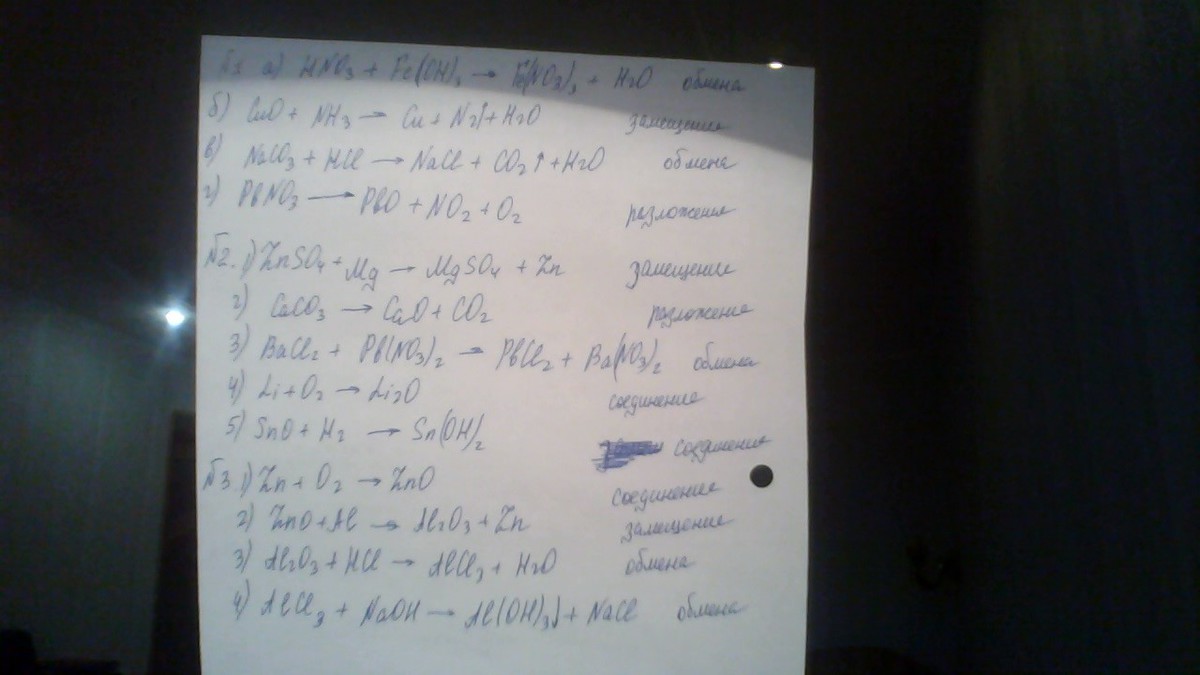 №1 а) HNO₃ + Fe(OH)₃ → Fe(NO₃)₃ + H₂O обмена
б) CuO + NH₃ → Cu + N₂↑ + H₂O замещение
в) NaCO₃ + HCl → NaCl + CO₂↑ + H₂O обмена
г) PbNO₃ → PbO + NO₂ + O₂ разложение
№2. 1) ZnSO₄ + Mg → MgSO₄ + Zn замещение
2) CaCO₃ → CaO + CO₂ разложение
3) BaCl₂ + Pb(NO₃)₂ → PbCl₂ + Ba(NO₃)₂ обмена
4) Li + O₂ → Li₂O соединение
5) SnO + H₂ → Sn(OH)₂ соединение
№3. 1) Zn + O₂ → ZnO соединение
2) ZnO + Al → Al₂O₃ + Zn замещение
3) Al₂O₃ + HCl → AlCl₃ + H₂O обмена
4) AlCl₃ + NaOH → Al(OH)₃↓ + NaCl обмена